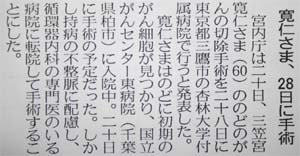 寛仁さま、28日に手術
　宮内庁は二十日、三笠宮
寛仁さま（60）ののどのが
んの切除手術を二十八日に
東京都三鷹市の杏林大学付
属病院で行うと発表した。
　寛仁さまはのどに初期の
がん細胞が見つかり、国立
がんセンター東病院（千葉
県柏市）に入院中。二十日
に手術の予定だった。しか
し持病の不整脈に配慮し、
循環器内科の専門医のいる
病院に転院して手術するこ
とにした。